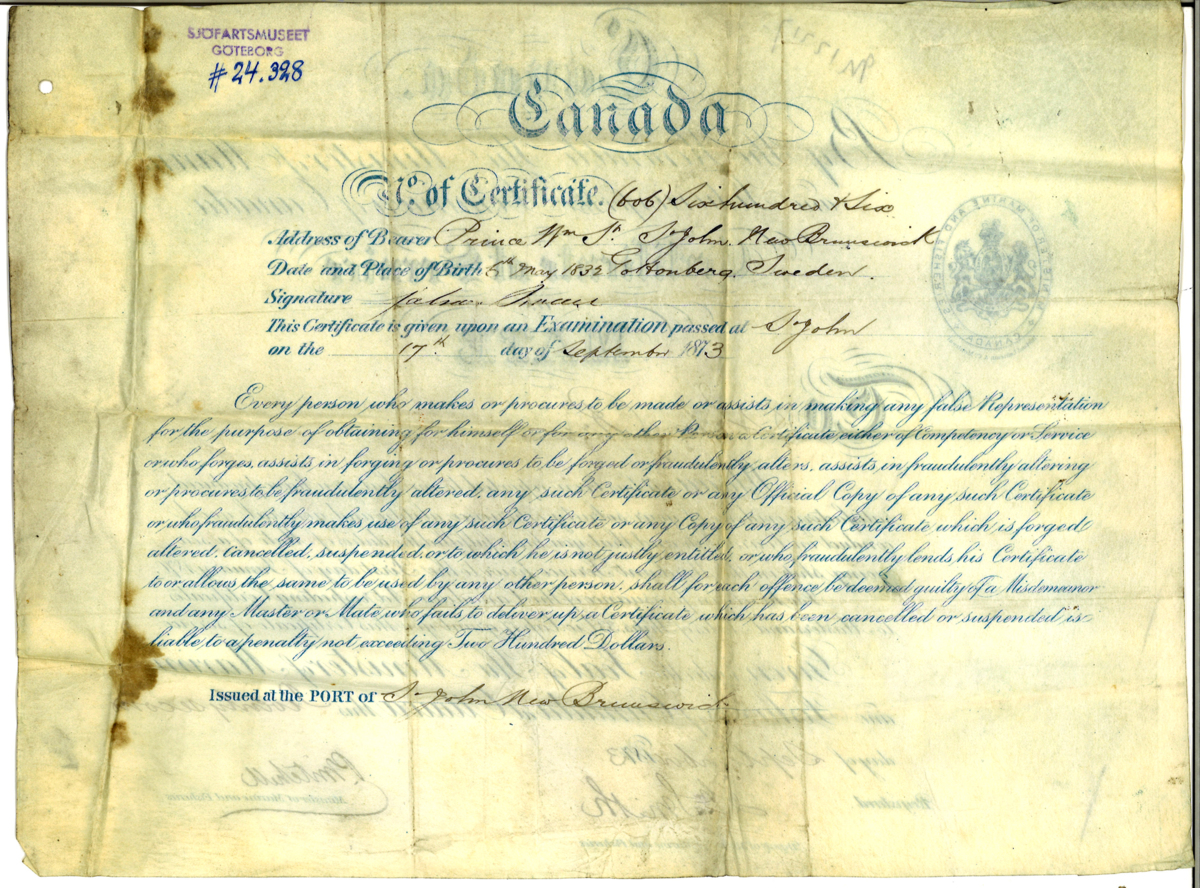 SJÖFARTSMUSEET
GÖTEBORG
# 24.328
Canada
No. of Certificate. (606) Six hundred & Six
Address of Bearer Prince Wm St. St John. New Brunswick
Date and Place of Birth 5th May 1832 Gottonberg, Sweden.
Signature
This Certificate is given upon an Examination passed at St John
on the 17th day of September 1873
Every person who makes or procures to be made or assists in making any false Representation
for the purpose of obtaining for himself or for any other Person a Certificate either of Competency or Service
or who forges, assists in forging or procures to be forged or fraudulently alters, assists in fraudulently altering
or procures to be fraudulently altered, any such Certificate or any Official Copy of any such Certificate
or who fraudulently makes use of any such Certificate or any Copy of any such Certificate which is forged
altered, cancelled, suspended, or to which he is not justly entitled, or who fraudulently lends his Certificate
to or allows the same to be used by any other person, shall for each offence be deemed guilty of a Misdemeanor
and any Master or Mate who fails to deliver up a Certificate which has been cancelled or suspended is
liable to a penalty not exceeding Two Hundred Dollars.
Issued at the PORT of St John New Brunswick